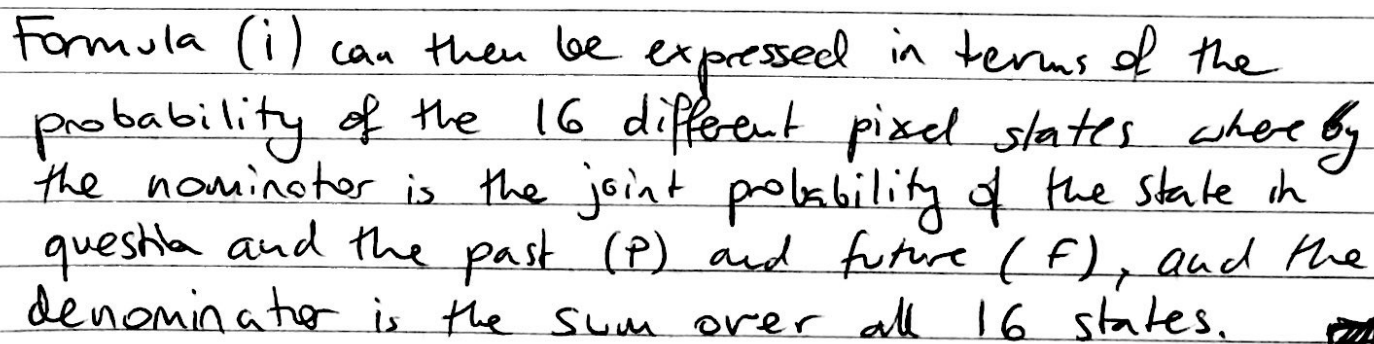 Formula (i) can then be expressed in terms of the
probability of the 16 different pixel states where by
the nominator is the joint probability of the state in
question and the past (P) and future (F), and the
denominator is the sum over all 16 states.